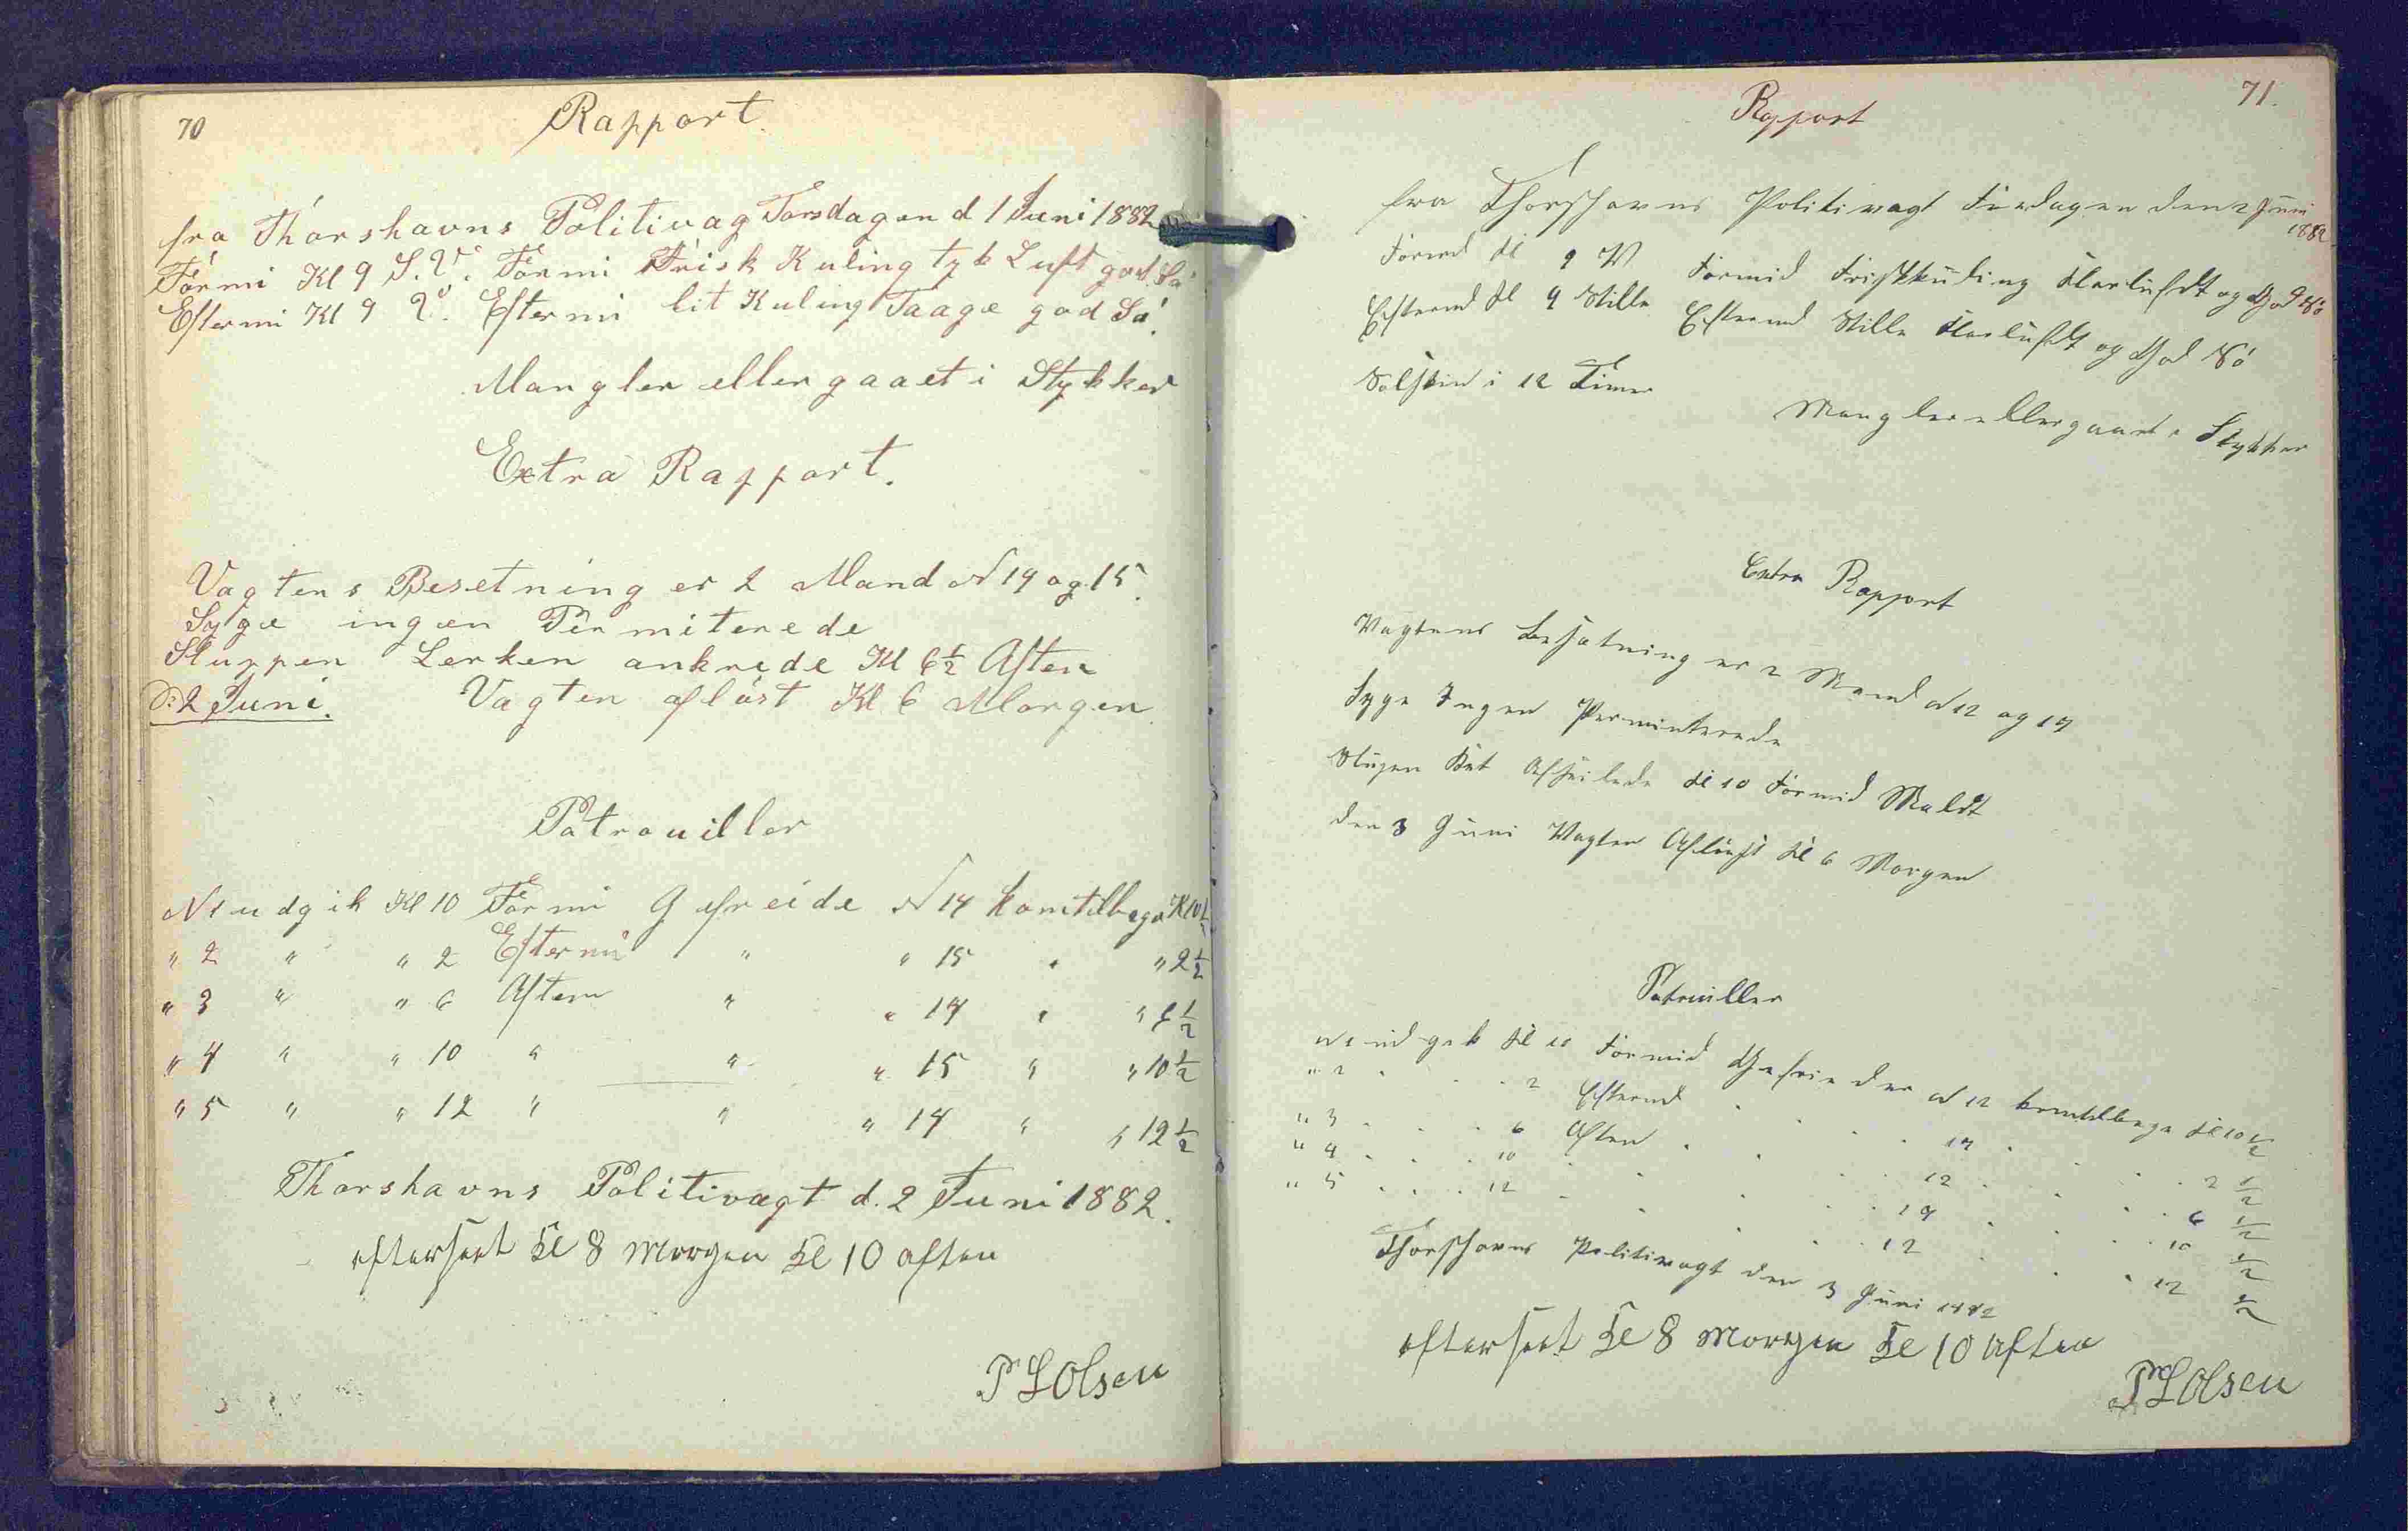 70
Rapport.
fra Thorshavns Politivag Torsdagen d 1 Juni 1882
Formi Kl 9 S.V. Formi Frisk Kuling tyk Luft god Sö
Eftermi Kl 9 V. Eftermi lit Kuling Taage god Sö.
Mangler eller gaaet i Stykker
Extra Rapport.
Vagtens Besetning er 2 Mand N 14 og 15.
Syge ingen Permiterede
Sluppen Lerken ankrede Kl 6½ Aften
D: 2 Juni. Vagten aflöst Kl 6 Morgen
Patrouiller
N 1 udgik Kl 10 Formi Gefreide N 14 kom tilbage K 10½
" 2 " " 2 Eftermi " " 15 " " 2½
" 3 " " 6 Aften " " 14 " " 6½
" 4 " " 10 " " " 15 " " 10½
" 5 " " 12 " " " 14 " " 12½
Thorshavns Politivagt d. 2 Juni 1882.
efterseet Kl 8 Morgen Kl 10 aften
P L Olsen
71.
Rapport
fra Thorshavns Politivagt Fredagen den 2 Juni 1882
Formd Kl 9 V Formid Friskkuling Klarluft og God Sö
Eftermd Kl 9 Stille Eftermd Stille Klarluft og God Sö
Solskin i 12 Timer
Mangler eller gaaet i Stykker
Extra Rapport
Vagtens Besatning er 2 Mand N 12 og 14
Syge Ingen Perminterede
Slupen Afseilede Kl 10 Formid
den 3 Juni Vagten Aflöst Kl 6 Morgen
Patruiller
N 1 udgik Kl 10 Formid Gefreider N 12 kom tilbage Kl 10½
" 2 . . . 2 Eftermd . . . 14 . . . 2½
" 3 . . . 6 Aften . . . 12 . . . 6½
" 4 . . . 10 . . . 14 . . . 10½
" 5 . . . 12 . . . 12 . . . 12½
Thorshavns Politivagt den 3 Juni 1882
efterseet Kl 8 Morgen Kl 10 Aften
P L Olsen